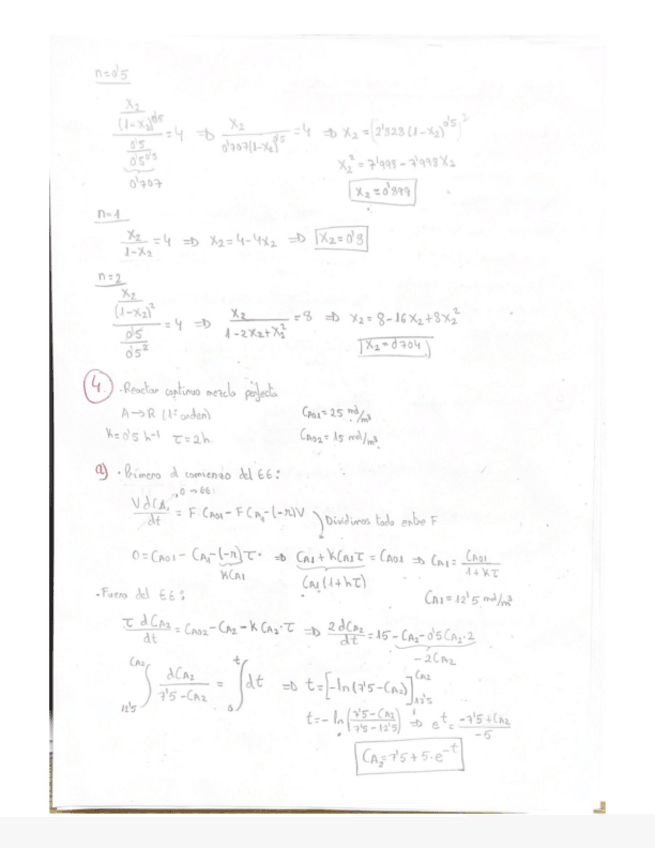 n=0'5
X2/(1-X2)^0'5 / 0'5/0'5^0'5 = 4 ⇒ X2/0'707(1-X2)^0'5 = 4 ⇒ X2 = (2'828(1-X2)^0'5)^2
0'707
X2^2 = 7'998 - 7'998X2
X2 = 0'899
n=1
X2/1-X2 = 4 ⇒ X2 = 4-4X2 ⇒ X2 = 0'8
n=2
X2/(1-X2)^2 / 0'5/0'5^2 = 4 ⇒ X2/1-2X2+X2^2 = 8 ⇒ X2 = 8-16X2+8X2^2
X2 = 0'704
4. · Reactor continuo mezcla perfecta
A→R (1er orden) CA01 = 25 mol/m³
k = 0'5 h⁻¹ τ = 2h CA02 = 15 mol/m³
a) · Primero el comienzo del EE:
0 → EE
V dCA1/dt = F·CA01 - F CA1 - (-r)V
Dividimos todo entre F
0 = CA01 - CA1 - (-r)τ · ⇒ CA1 + kCA1τ = CA01 ⇒ CA1 = CA01/1+kτ
kCA1 CA1(1+kτ)
CA1 = 12'5 mol/m³
- Fuera del EE:
τ dCA2/dt = CA02 - CA2 - k CA2·τ ⇒ 2dCA2/dt = 15 - CA2 - 0'5CA2·2
-2CA2
∫_12'5^CA2 dCA2/7'5-CA2 = ∫_0^t dt ⇒ t = [-ln(7'5-CA2)]_12'5^CA2
t = -ln(7'5-CA2/7'5-12'5) ⇒ e^t = -7'5+CA2/-5
CA2 = 7'5 + 5·e^-t